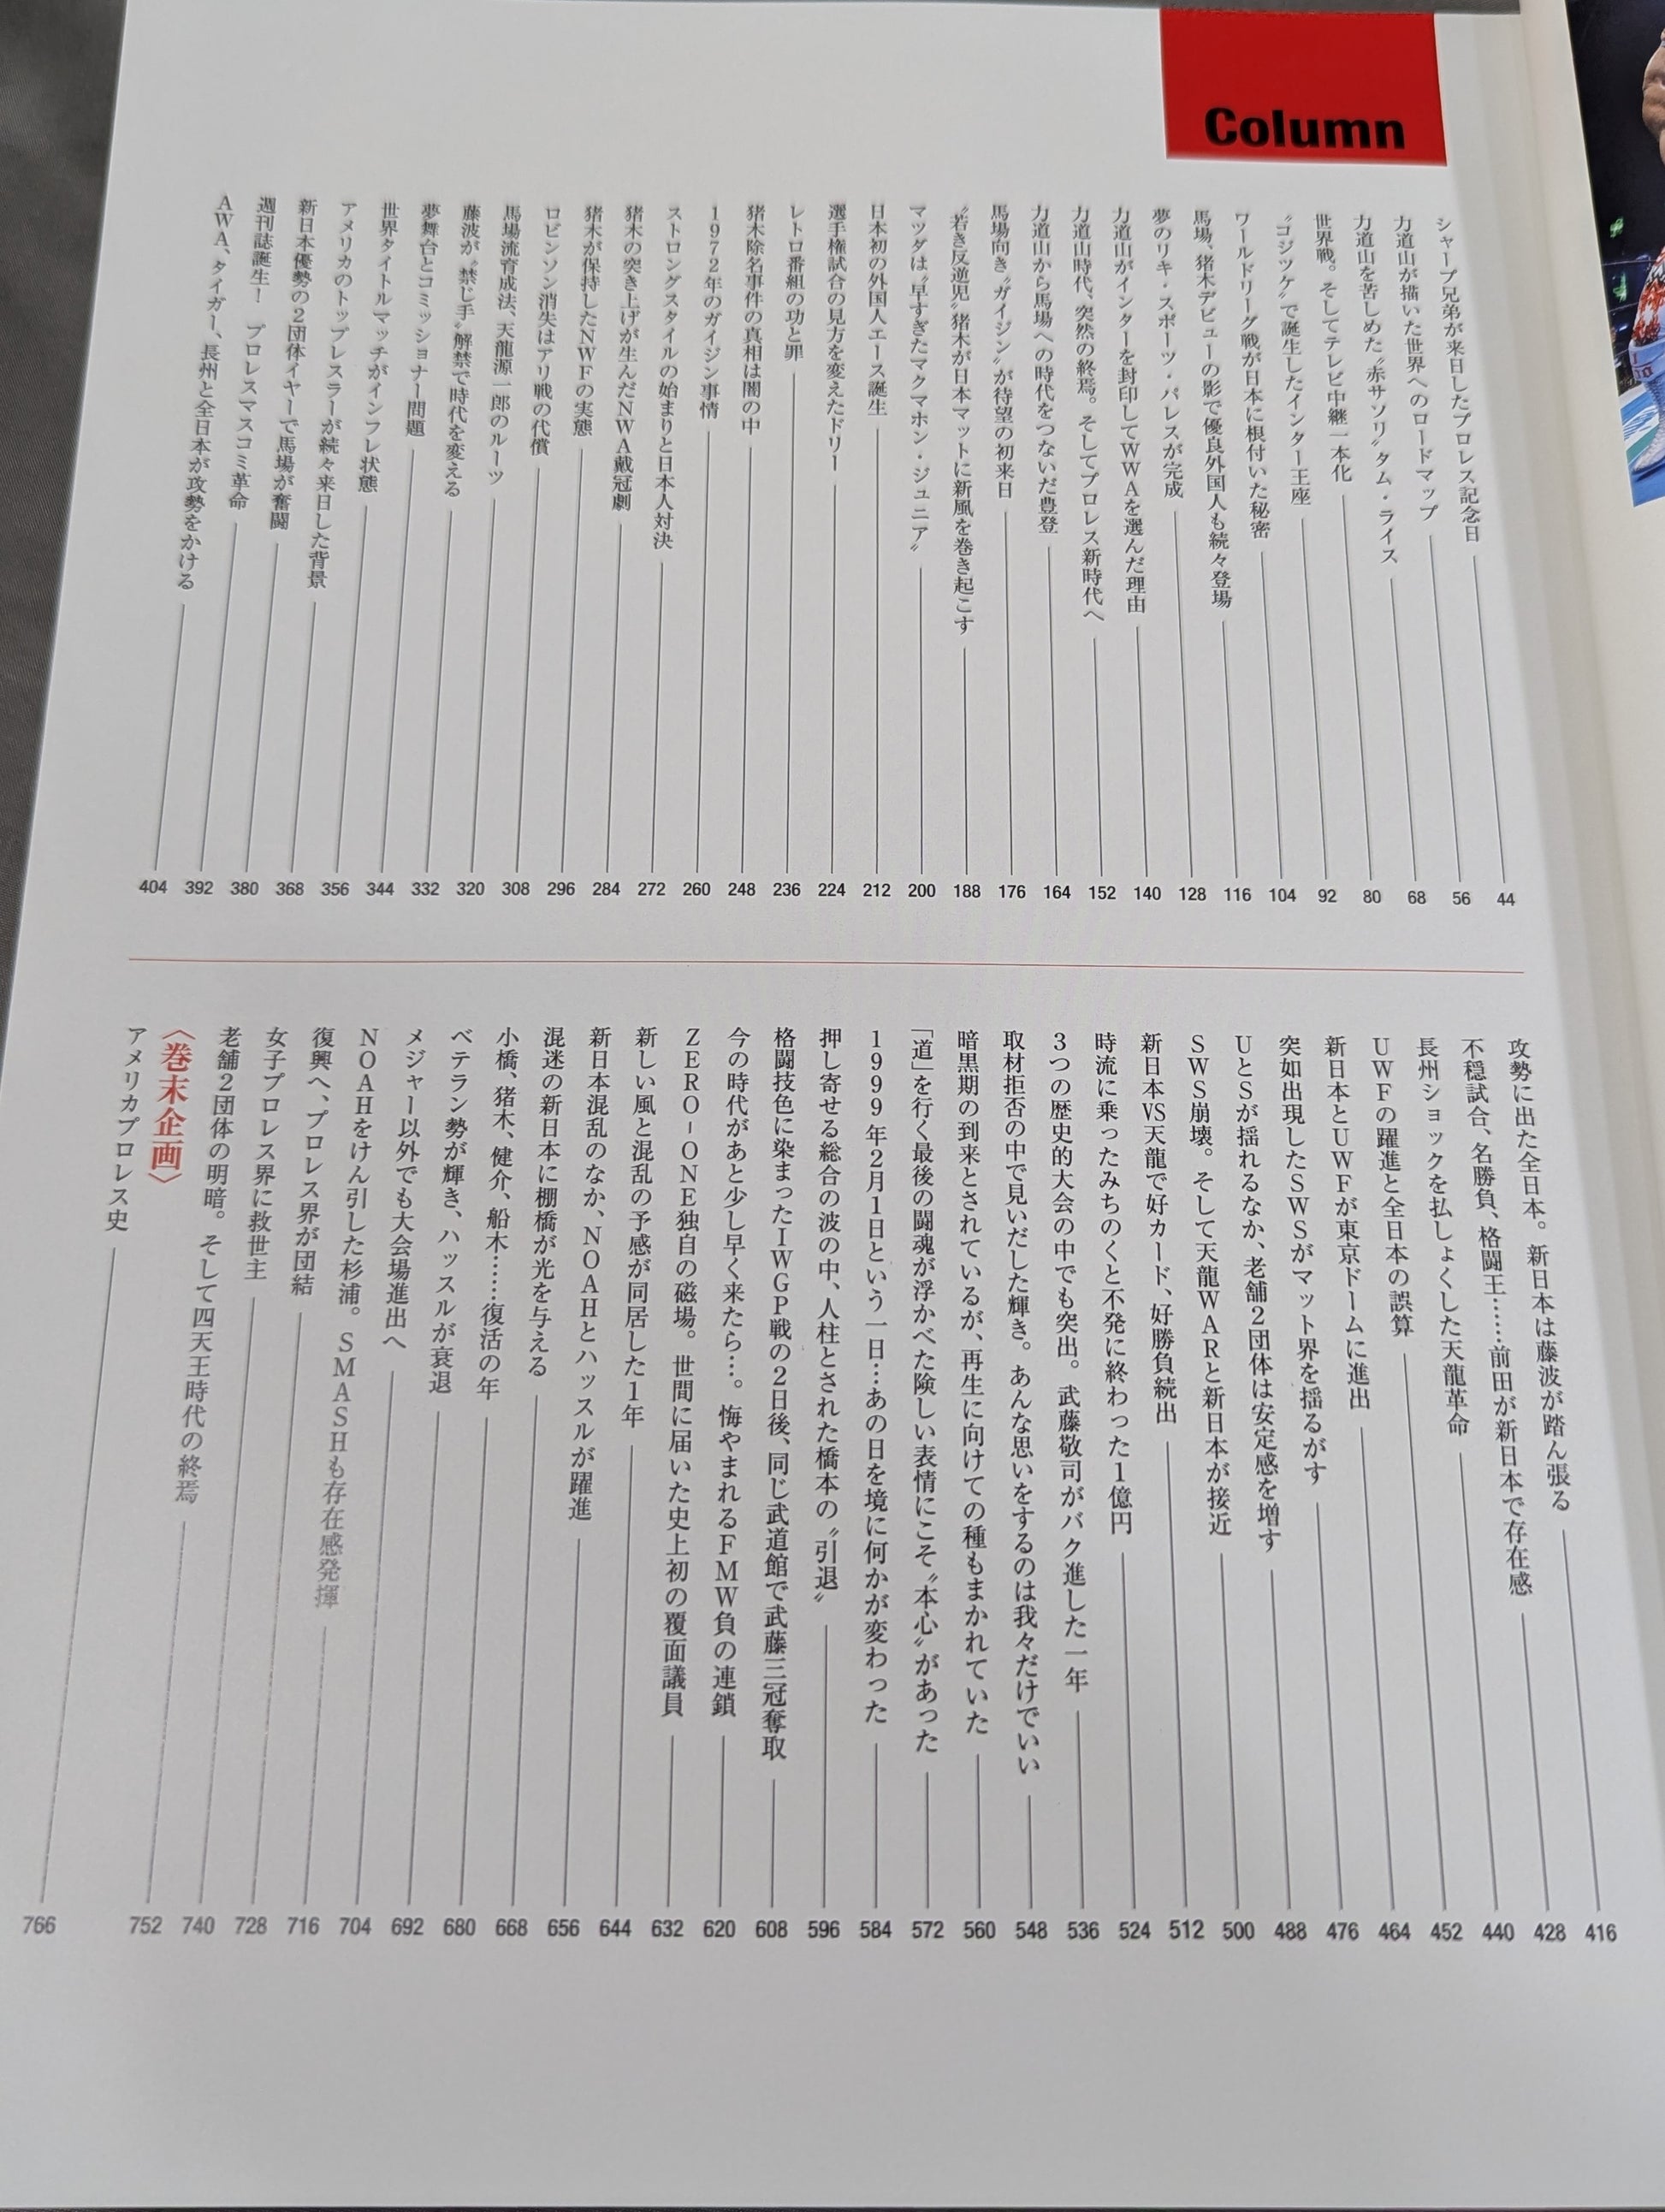 Column
シャープ兄弟が来日したプロレス記念日 44
力道山が描いた世界へのロードマップ 56
力道山を苦しめた〝赤サソリ〟タム・ライス 68
世界戦。そしてテレビ中継一本化 80
〝ゴジツケ〟で誕生したインター王座 92
ワールドリーグ戦が日本に根付いた秘密 104
馬場、猪木デビューの影で優良外国人も続々登場 116
夢のリキ・スポーツ・パレスが完成 128
力道山がインターを封印してWWAを選んだ理由 140
力道山時代、突然の終焉。そしてプロレス新時代へ 152
力道山から馬場への時代をつないだ豊登 164
馬場向き〝ガイジン〟が待望の初来日 176
〝若き反逆児〟猪木が日本マットに新風を巻き起こす 188
マツダは〝早すぎたマクマホン・ジュニア〟 200
日本初の外国人エース誕生 212
選手権試合の見方を変えたドリー 224
レトロ番組の功と罪 236
猪木除名事件の真相は闇の中 248
1972年のガイジン事情 260
ストロングスタイルの始まりと日本人対決 272
猪木の突き上げが生んだNWA戴冠劇 284
猪木が保持したNWFの実態 296
ロビンソン消失はアリ戦の代償 308
馬場流育成法、天龍源一郎のルーツ 320
藤波が〝禁じ手〟解禁で時代を変える 332
夢舞台とコミッショナー問題 344
世界タイトルマッチがインフレ状態 356
アメリカのトップレスラーが続々来日した背景 368
新日本優勢の2団体イヤーで馬場が奮闘 380
週刊誌誕生! プロレスマスコミ革命 392
AWA、タイガー、長州と全日本が攻勢をかける 404
攻勢に出た全日本。新日本は藤波が踏ん張る 416
不穏試合、名勝負、格闘王……前田が新日本で存在感 428
長州ショックを払しょくした天龍革命 440
UWFの躍進と全日本の誤算 452
新日本とUWFが東京ドームに進出 464
突如出現したSWSがマット界を揺るがす 476
UとSが揺れるなか、老舗2団体は安定感を増す 488
SWS崩壊。そして天龍WARと新日本が接近 500
新日本VS天龍で好カード、好勝負続出 512
時流に乗ったみちのくと不発に終わった1億円 524
3つの歴史的大会の中でも突出。武藤敬司がバク進した一年 536
取材拒否の中で見いだした輝き。あんな思いをするのは我々だけでいい 548
暗黒期の到来とされているが、再生に向けての種もまかれていた 560
「道」を行く最後の闘魂が浮かべた険しい表情にこそ〝本心〟があった 572
1999年2月1日という一日…あの日を境に何かが変わった 584
押し寄せる総合の波の中、人柱とされた橋本の〝引退〟 596
格闘技色に染まったIWGP戦の2日後、同じ武道館で武藤三冠奪取 608
今の時代があと少し早く来たら…。悔やまれるFMW負の連鎖 620
ZERO-ONE独自の磁場。世間に届いた史上初の覆面議員 632
新しい風と混乱の予感が同居した1年 644
新日本混乱のなか、NOAHとハッスルが躍進 656
混迷の新日本に棚橋が光を与える 668
小橋、猪木、健介、船木……復活の年 680
ベテラン勢が輝き、ハッスルが衰退 692
メジャー以外でも大会場進出へ 704
NOAHをけん引した杉浦。SMASHも存在感発揮 716
復興へ、プロレス界が団結 728
女子プロレス界に救世主 740
老舗2団体の明暗。そして四天王時代の終焉 752
〈巻末企画〉
アメリカプロレス史 766